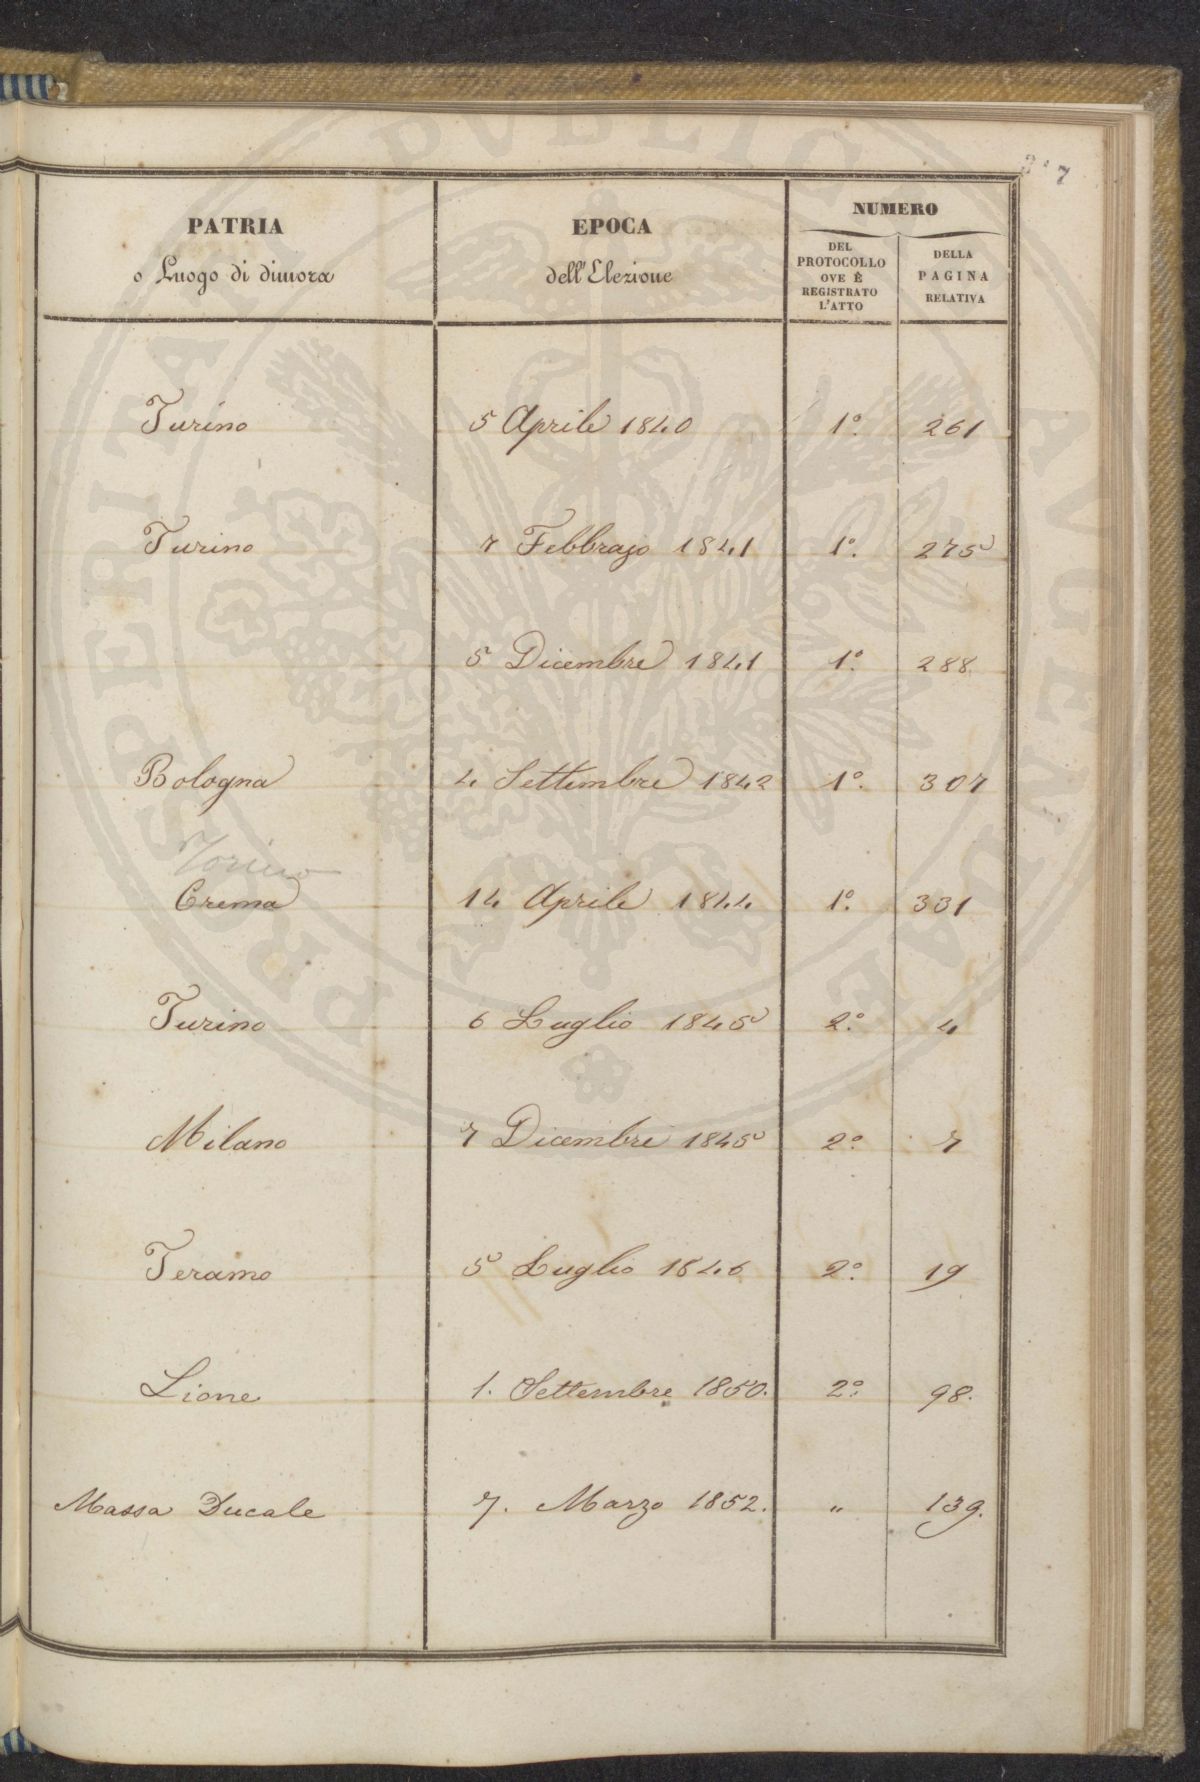 PATRIA
o Luogo di dimora
EPOCA
dell'Elezione
NUMERO
DEL
PROTOCOLLO
OVE È
REGISTRATO
L'ATTO
DELLA
PAGINA
RELATIVA
Turino 5 Aprile 1840 1º. 261
Turino 7 Febbrajo 1841 1º. 275
5 Dicembre 1841 1º. 288
Bologna 4 Settembre 1842 1º. 307
Torino
Crema 14 Aprile 1844 1º. 331
Turino 6 Luglio 1845 2º. 4
Milano 7 Dicembre 1845 2º. 7
Teramo 5 Luglio 1846 2º. 19
Lione 1. Settembre 1850. 2º. 98.
Massa Ducale 7. Marzo 1852. " 139.
PUBLICA AUGENDAE PROSPERITATI